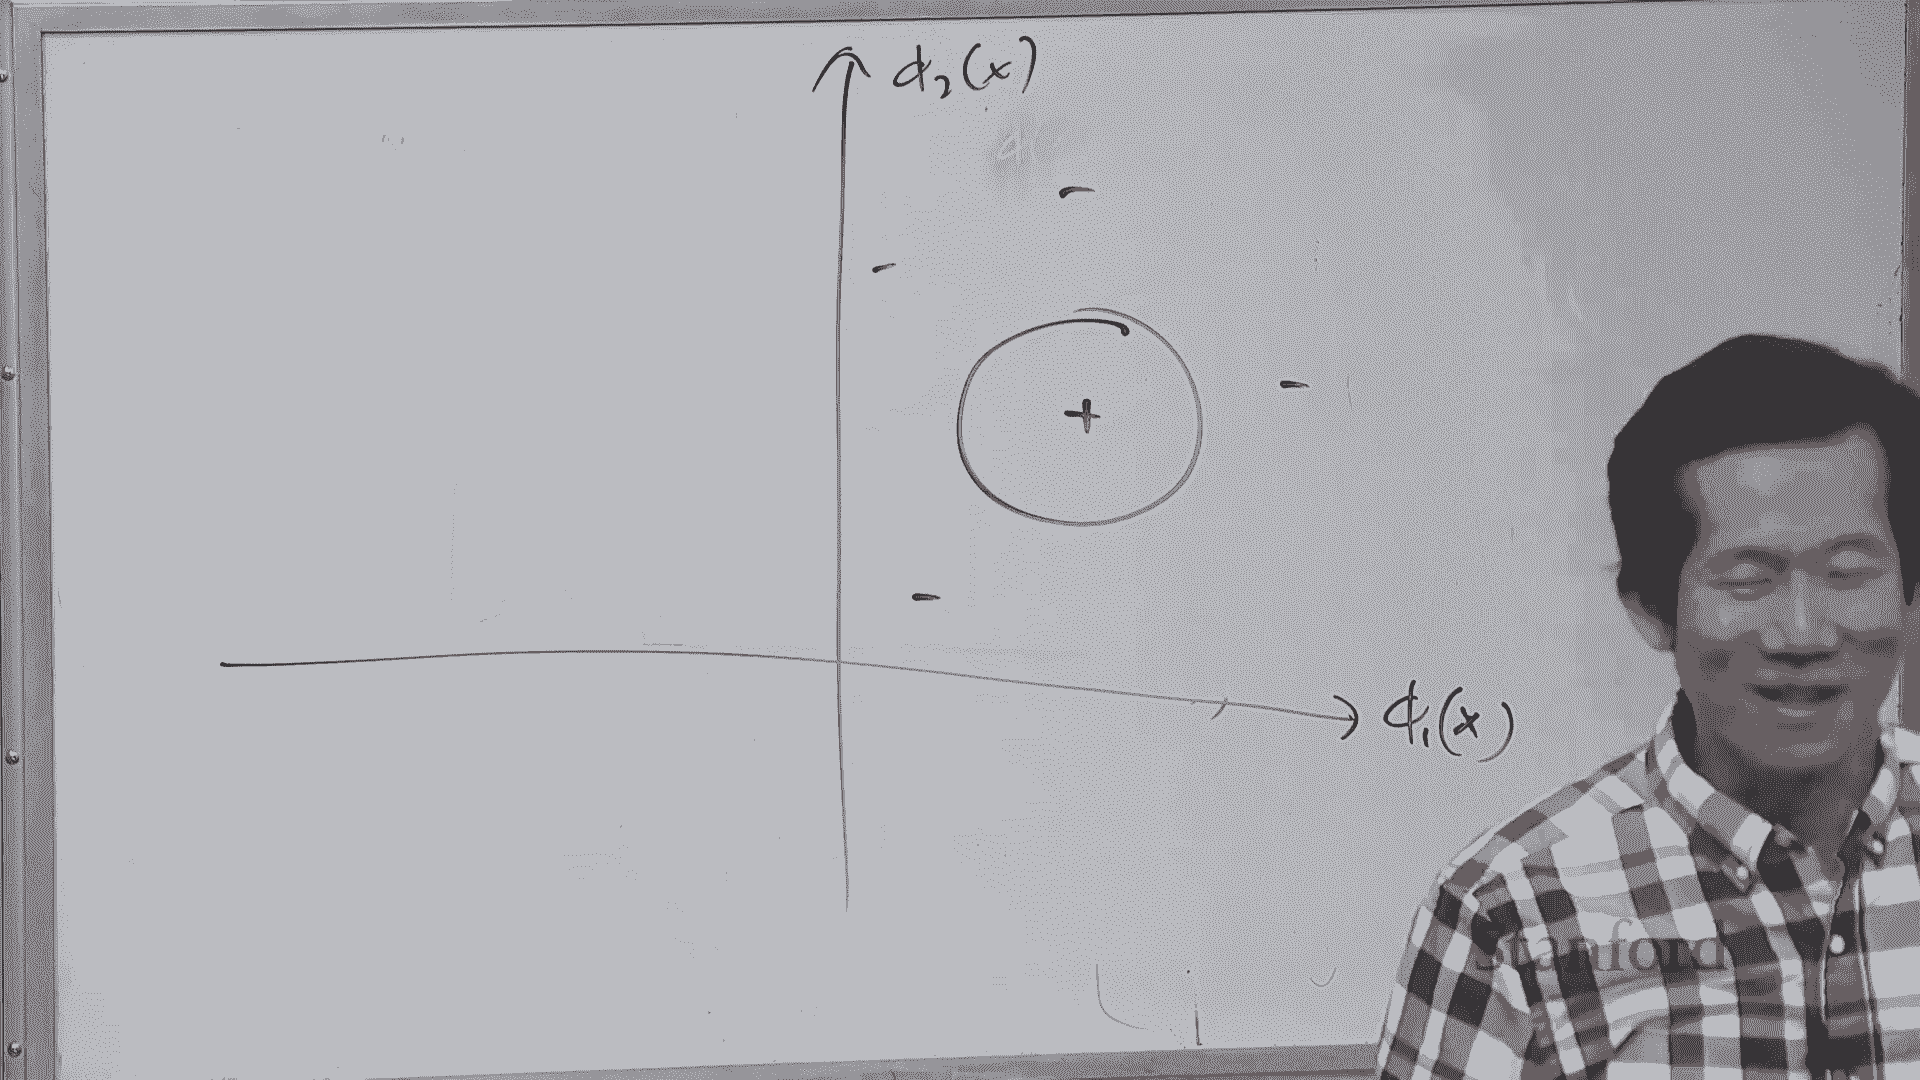 ϕ₂(x)
-
-
-
+
-
ϕ₁(x)
Stanford